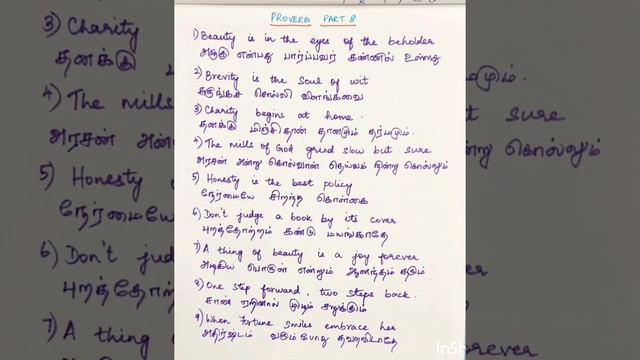 PROVERB PART 8
1) Beauty is in the eyes of the beholder
அழகு என்பது பார்ப்பவர் கண்ணில் உள்ளது
2) Brevity is the soul of wit
சுருங்கச் சொல்லி விளங்கவை
3) Charity begins at home.
தனக்கு மிஞ்சிதான் தானமும் தர்மமும்.
4) The mills of God grind slow but sure
அரசன் அன்று கொல்வான் தெய்வம் நின்று கொல்லும்
5) Honesty is the best policy
நேர்மையே சிறந்த கொள்கை
6) Don't judge a book by its cover
புறத்தோற்றம் கண்டு மயங்காதே
7) A thing of beauty is a joy forever
அழகிய பொருள் என்றும் ஆனந்தம் தரும்
8) One step forward, two steps back.
சாண் ஏறினால் முழம் சறுக்கும்
9) When fortune smiles embrace her
அதிர்ஷ்டம் வரும்போது தவறவிடாதே
3) Charity
தனக்கு
4) The mills
அரசன் அன்
5) Honesty
நேர்மையே
6) Don't
புறத்தோ
7) A thing
மும்.
sure
று கொல்லும்
forever
InSh